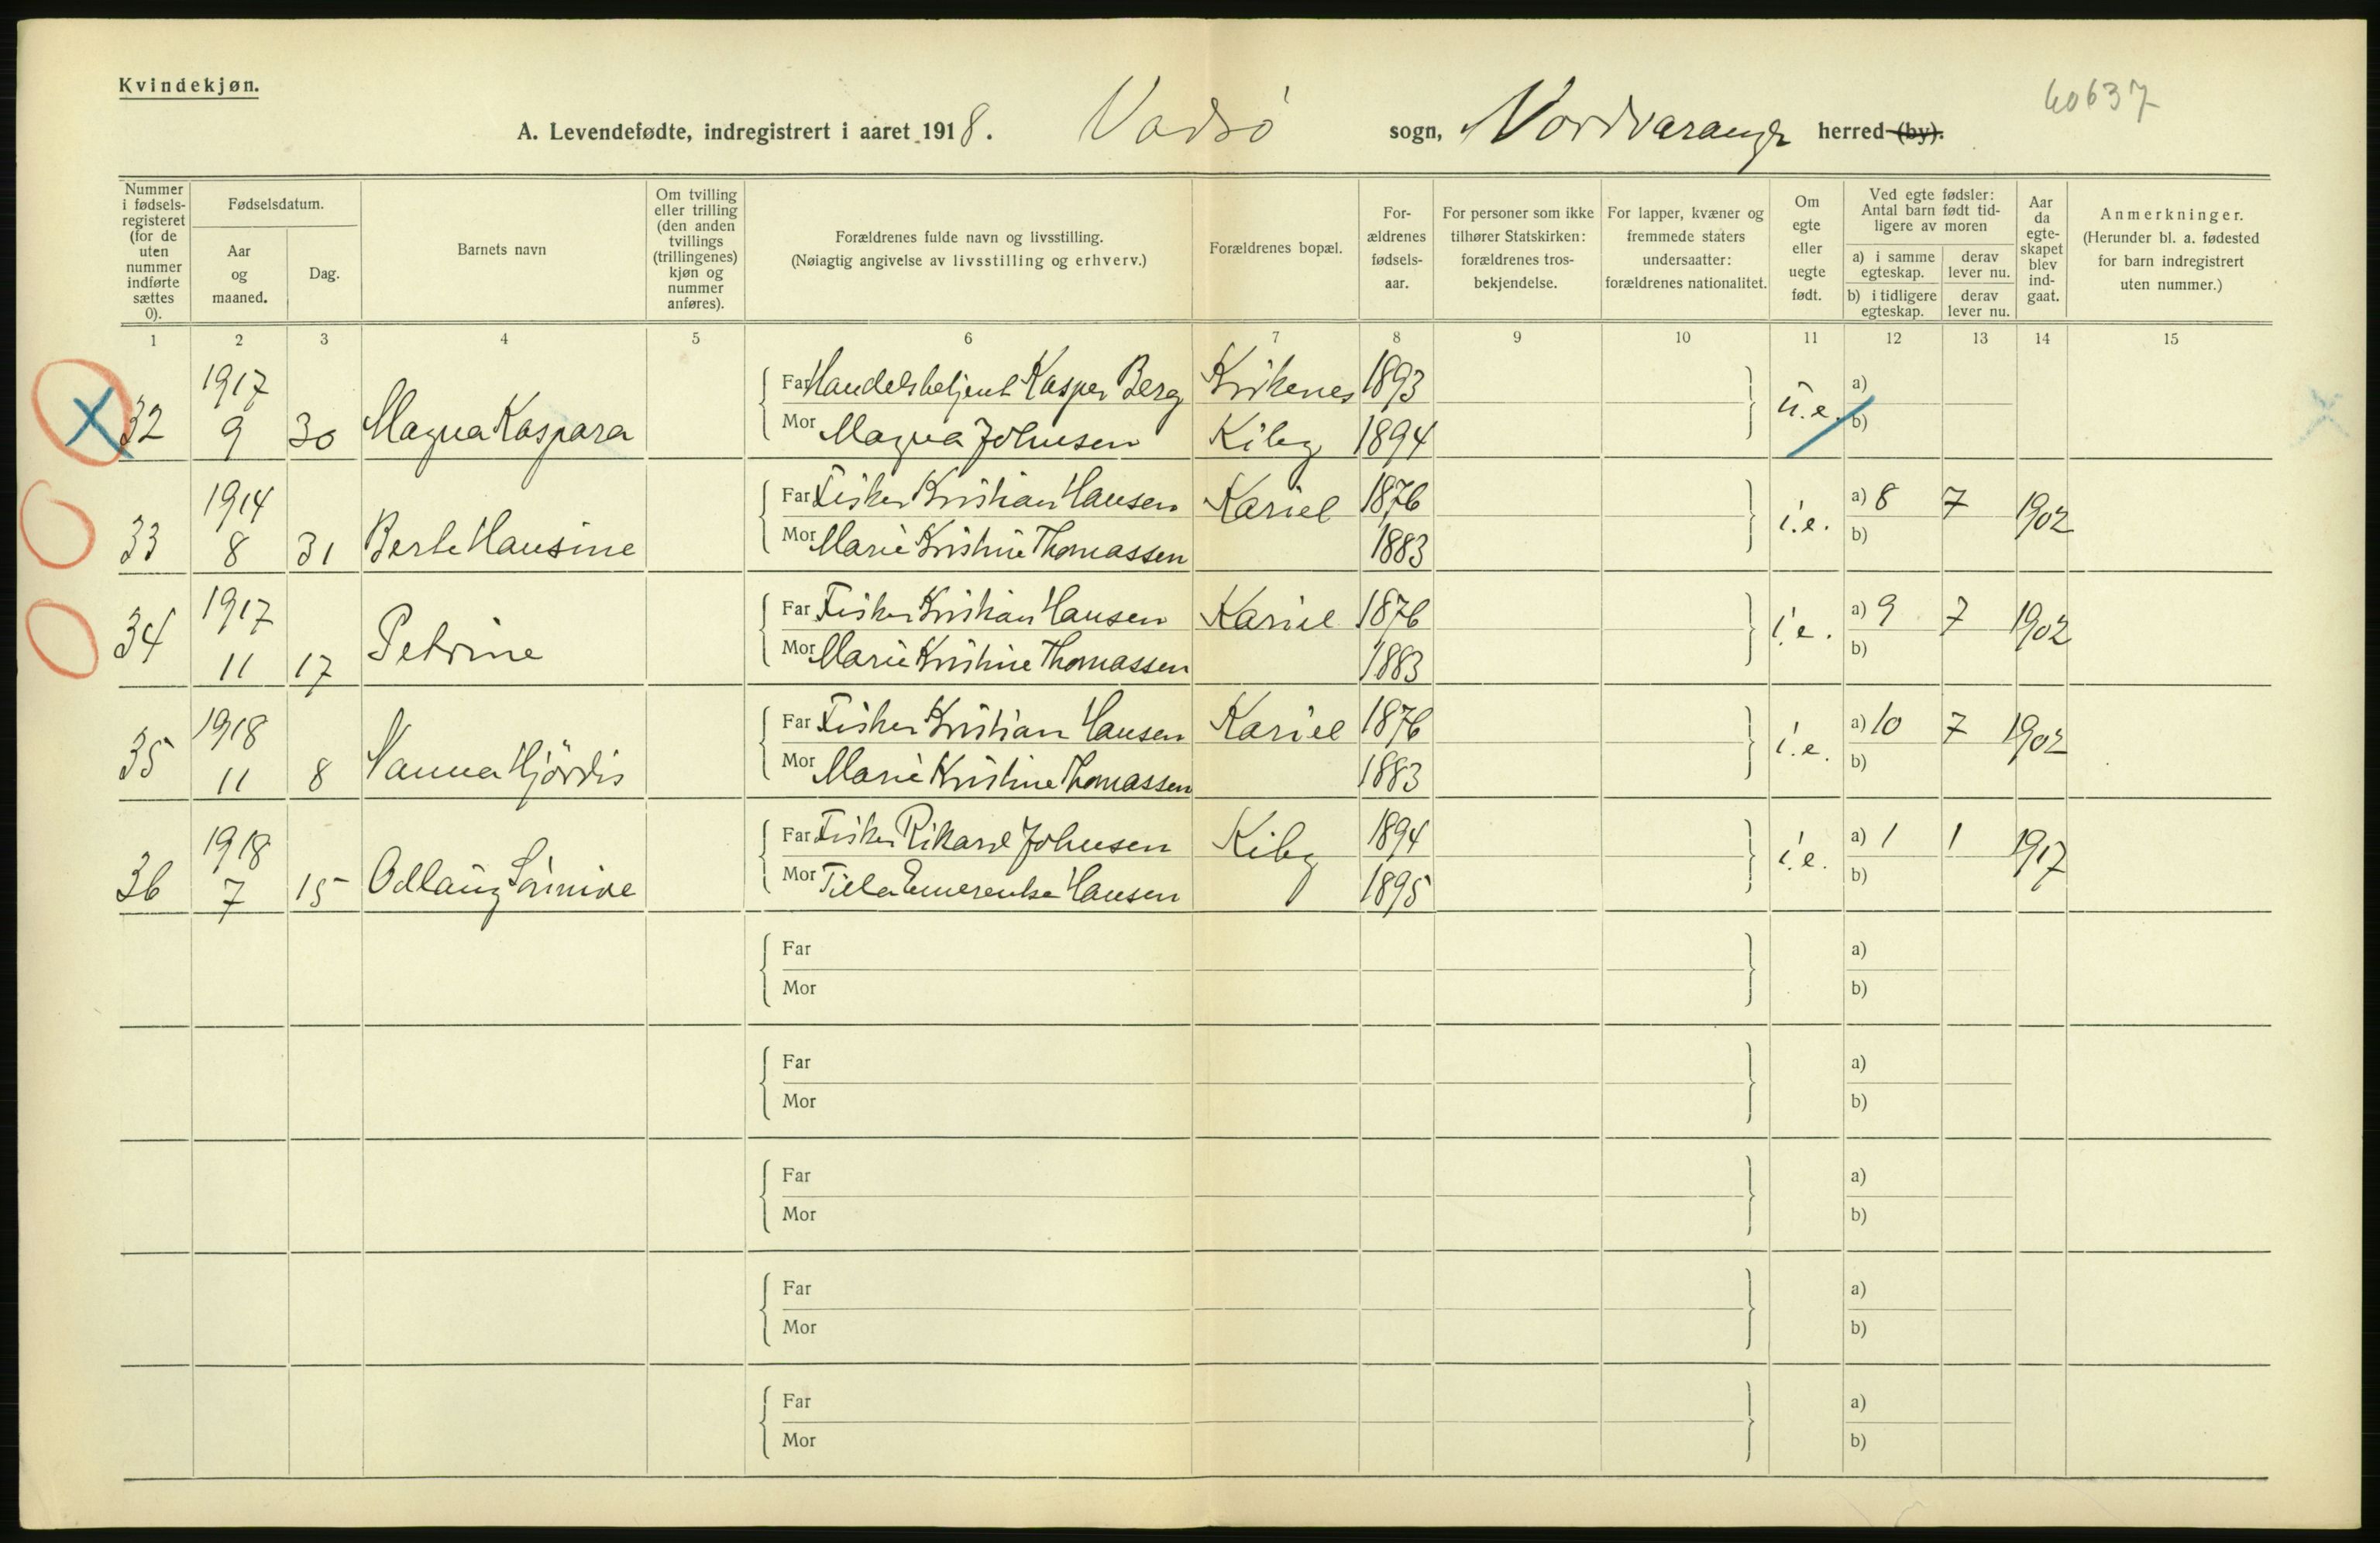 Kvindekjøn.
60637
A. Levendefødte, indregistrert i aaret 1918. Vadsö sogn, Nordvaranger herred (by).
Nummer i fødselsregisteret (for de uten nummer indførte sættes 0).
Fødselsdatum.
Aar og maaned.
Dag.
Barnets navn
Om tvilling eller trilling (den anden tvillings (trillingenes) kjøn og nummer anføres).
Forældrenes fulde navn og livsstilling.
(Nøiagtig angivelse av livsstilling og erhverv.)
Forældrenes bopæl.
For-ældrenes fødsels-aar.
For personer som ikke tilhører Statskirken: forældrenes tros-bekjendelse.
For lapper, kvæner og fremmede staters undersaatter: forældrenes nationalitet.
Om egte eller uegte født.
Ved egte fødsler: Antal barn født tid-ligere av moren
a) i samme egteskap.
derav lever nu.
b) i tidligere egteskap.
derav lever nu.
Aar da egte-skapet blev ind-gaat.
Anmerkninger.
(Herunder bl. a. fødested for barn indregistrert uten nummer.)
1 2 3 4 5 6 7 8 9 10 11 12 13 14 15
1917 Far Handelsbetjent Kasper Berg Kirkenes 1893 a)
32 9 30 Magna Kaspara Mor Magna Johnsen Kiberg 1894 u.e. b)
1914 Far Fisker Kristian Hansen Kariel 1876 a) 8 7 1902
33 8 31 Hansine Mor Marie Kristine Thomassen 1883 i.e. b)
1917 Far Fisker Kristian Hansen Kariel 1876 a) 9 7 1902
34 11 17 Petrine Mor Marie Kristine Thomassen 1883 i.e. b)
1918 Far Fisker Kristian Hansen Kariel 1876 a) 10 7 1902
35 11 8 Nanna Hjördis Mor Marie Kristine Thomassen 1883 i.e. b)
1918 Far Fisker Rikard Johnsen Kiberg 1894 a) 1 1 1917
36 7 15 Odlaug Mor Hansen 1895 i.e. b)
Far a)
Mor b)
Far a)
Mor b)
Far a)
Mor b)
Far a)
Mor b)
Far a)
Mor b)